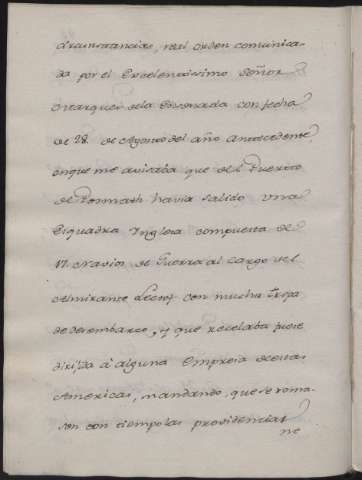 circunstancias, real orden comunica-
da por el Excelentissimo Señor
Marques de la Ensenada con fecha
de 28. de Agosto del año antecedente,
en que me avisaba que del Puerto
de Posmouth havia salido una
Esquadra Ynglesa compuesta de
17. Navios de Guerra al cargo del
Almirante Lestoj con mucha tropa
de desembarco, y que recelaba fuese
dirijida à alguna empresa de estas
Americas, mandando, que se toma-
sen con tiempo las providencias
ne